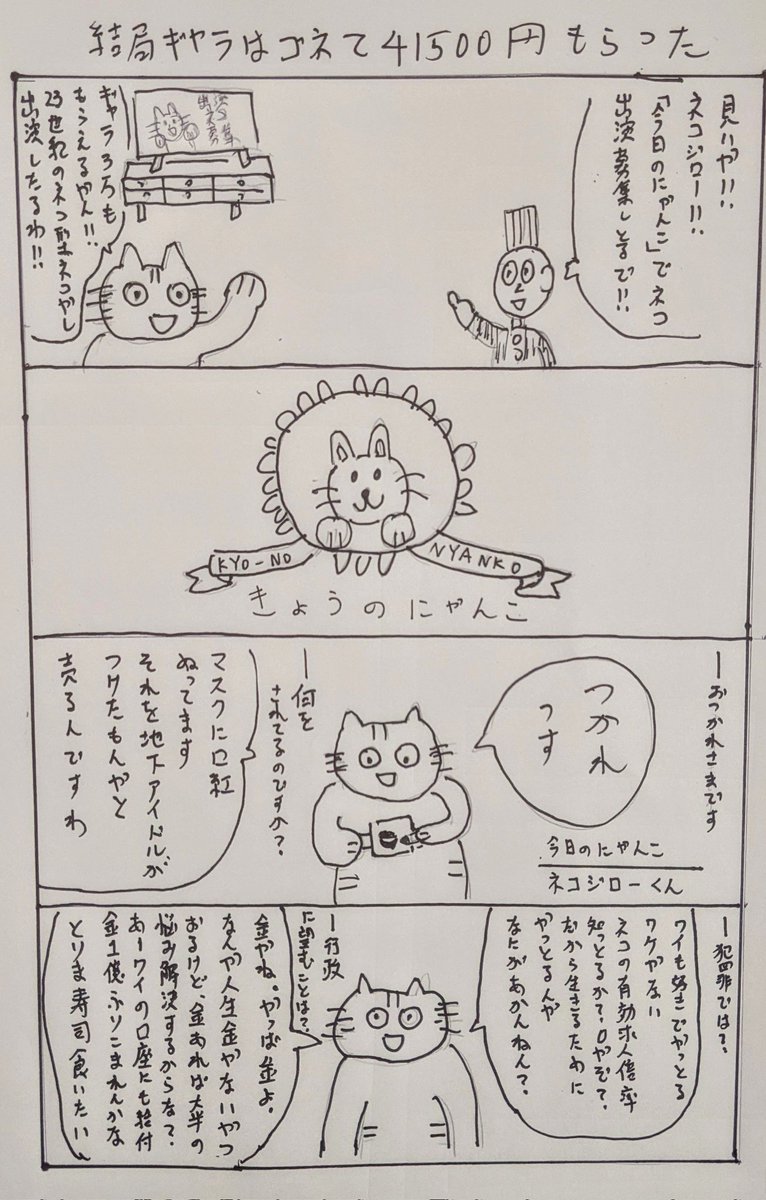 結局ギャラはゴネて41500円もらった
見いや!!
ネコジロー!!
「今日のにゃんこ」でネコ
出演募集しとるで!!
出演
ネコ
募集
ギャラ3万も
もらえるやん!!
23世紀のネコ型ネコやし
出演したるわ!!
KYO-NO
NYANKO
きょうのにゃんこ
ーおつかれさまです
つかれ
っす
今日のにゃんこ
ネコジローくん
ー何を
されてるのですか?
マスクに口紅
ぬってます
それを地下アイドルが
つけたもんやと
売るんですわ
ー犯罪では?
ワイも好きでやっとる
ワケやない
ネコの有効求人倍率
知っとるか?0やぞ?
だから生きるために
やっとるんや
なにがあかんねん?
ー行政
に望むことは?
金やね。やっぱ金よ。
なんか人生金やないやつ
おるけど、金あれば大半の
悩み解決するからな?
あーワイの口座にも給付
金1億ふりこまれんかな
とりま寿司食いたい